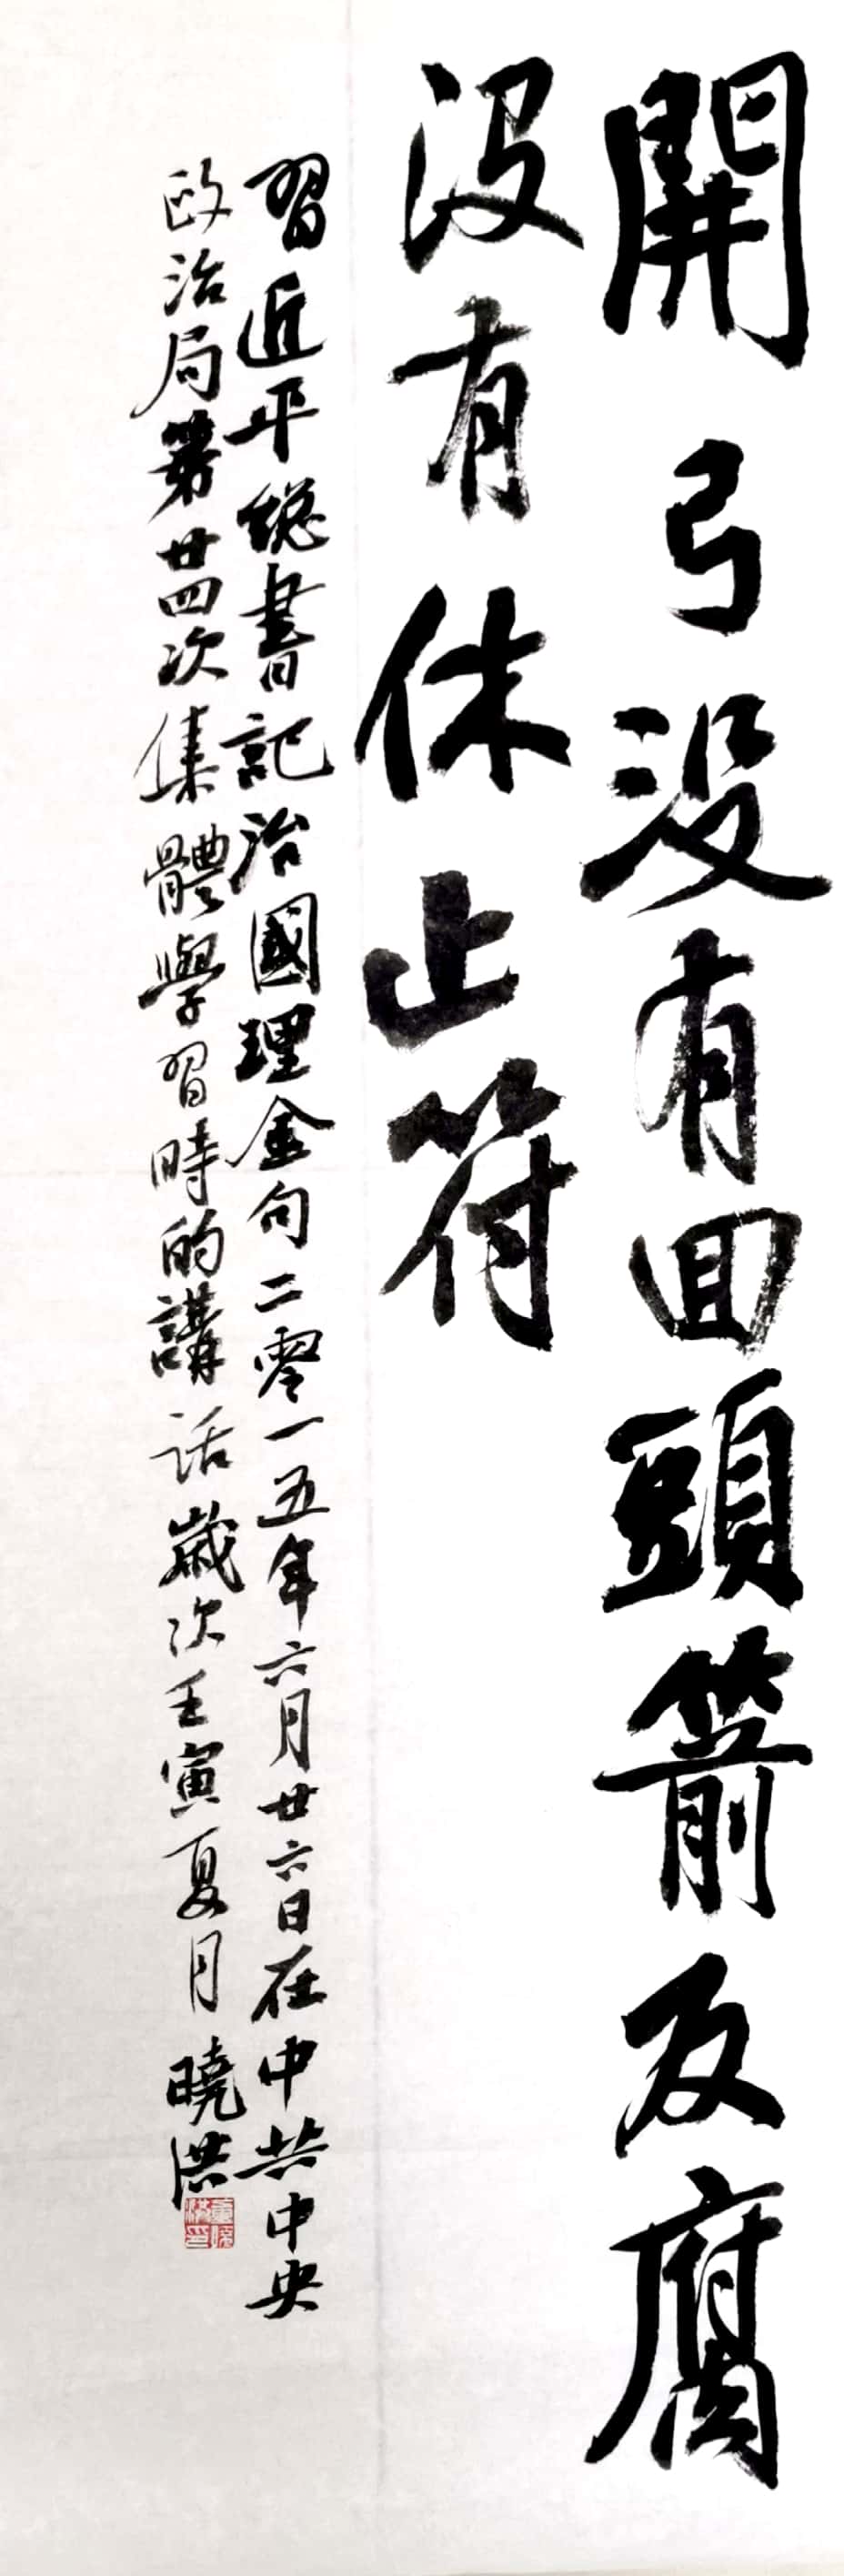 開弓没有回頭箭反腐
没有休止符
習近平總書記治國理金句二零一五年六月廿六日在中共中央
政治局第廿四次集體學習時的講話歲次壬寅夏月曉洪